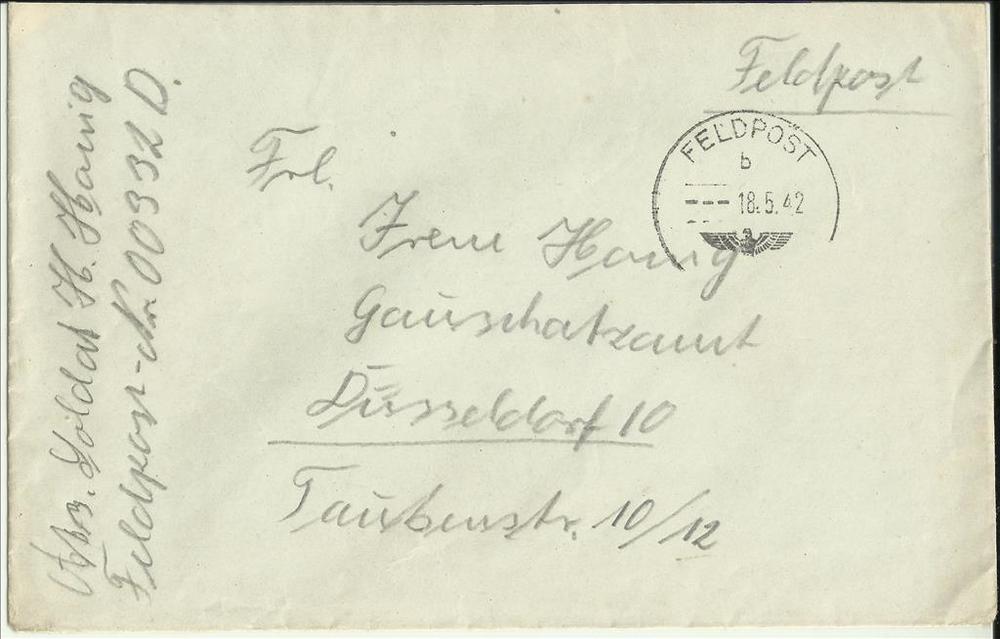 Feldpost
FELDPOST
b
18.5.42
Frl.
Irene Honig
Gauschatzamt
Düsseldorf 10
Taubenstr. 10/12
Abs. Soldat H. Honig
Feldpost-Nr. 00332 D.